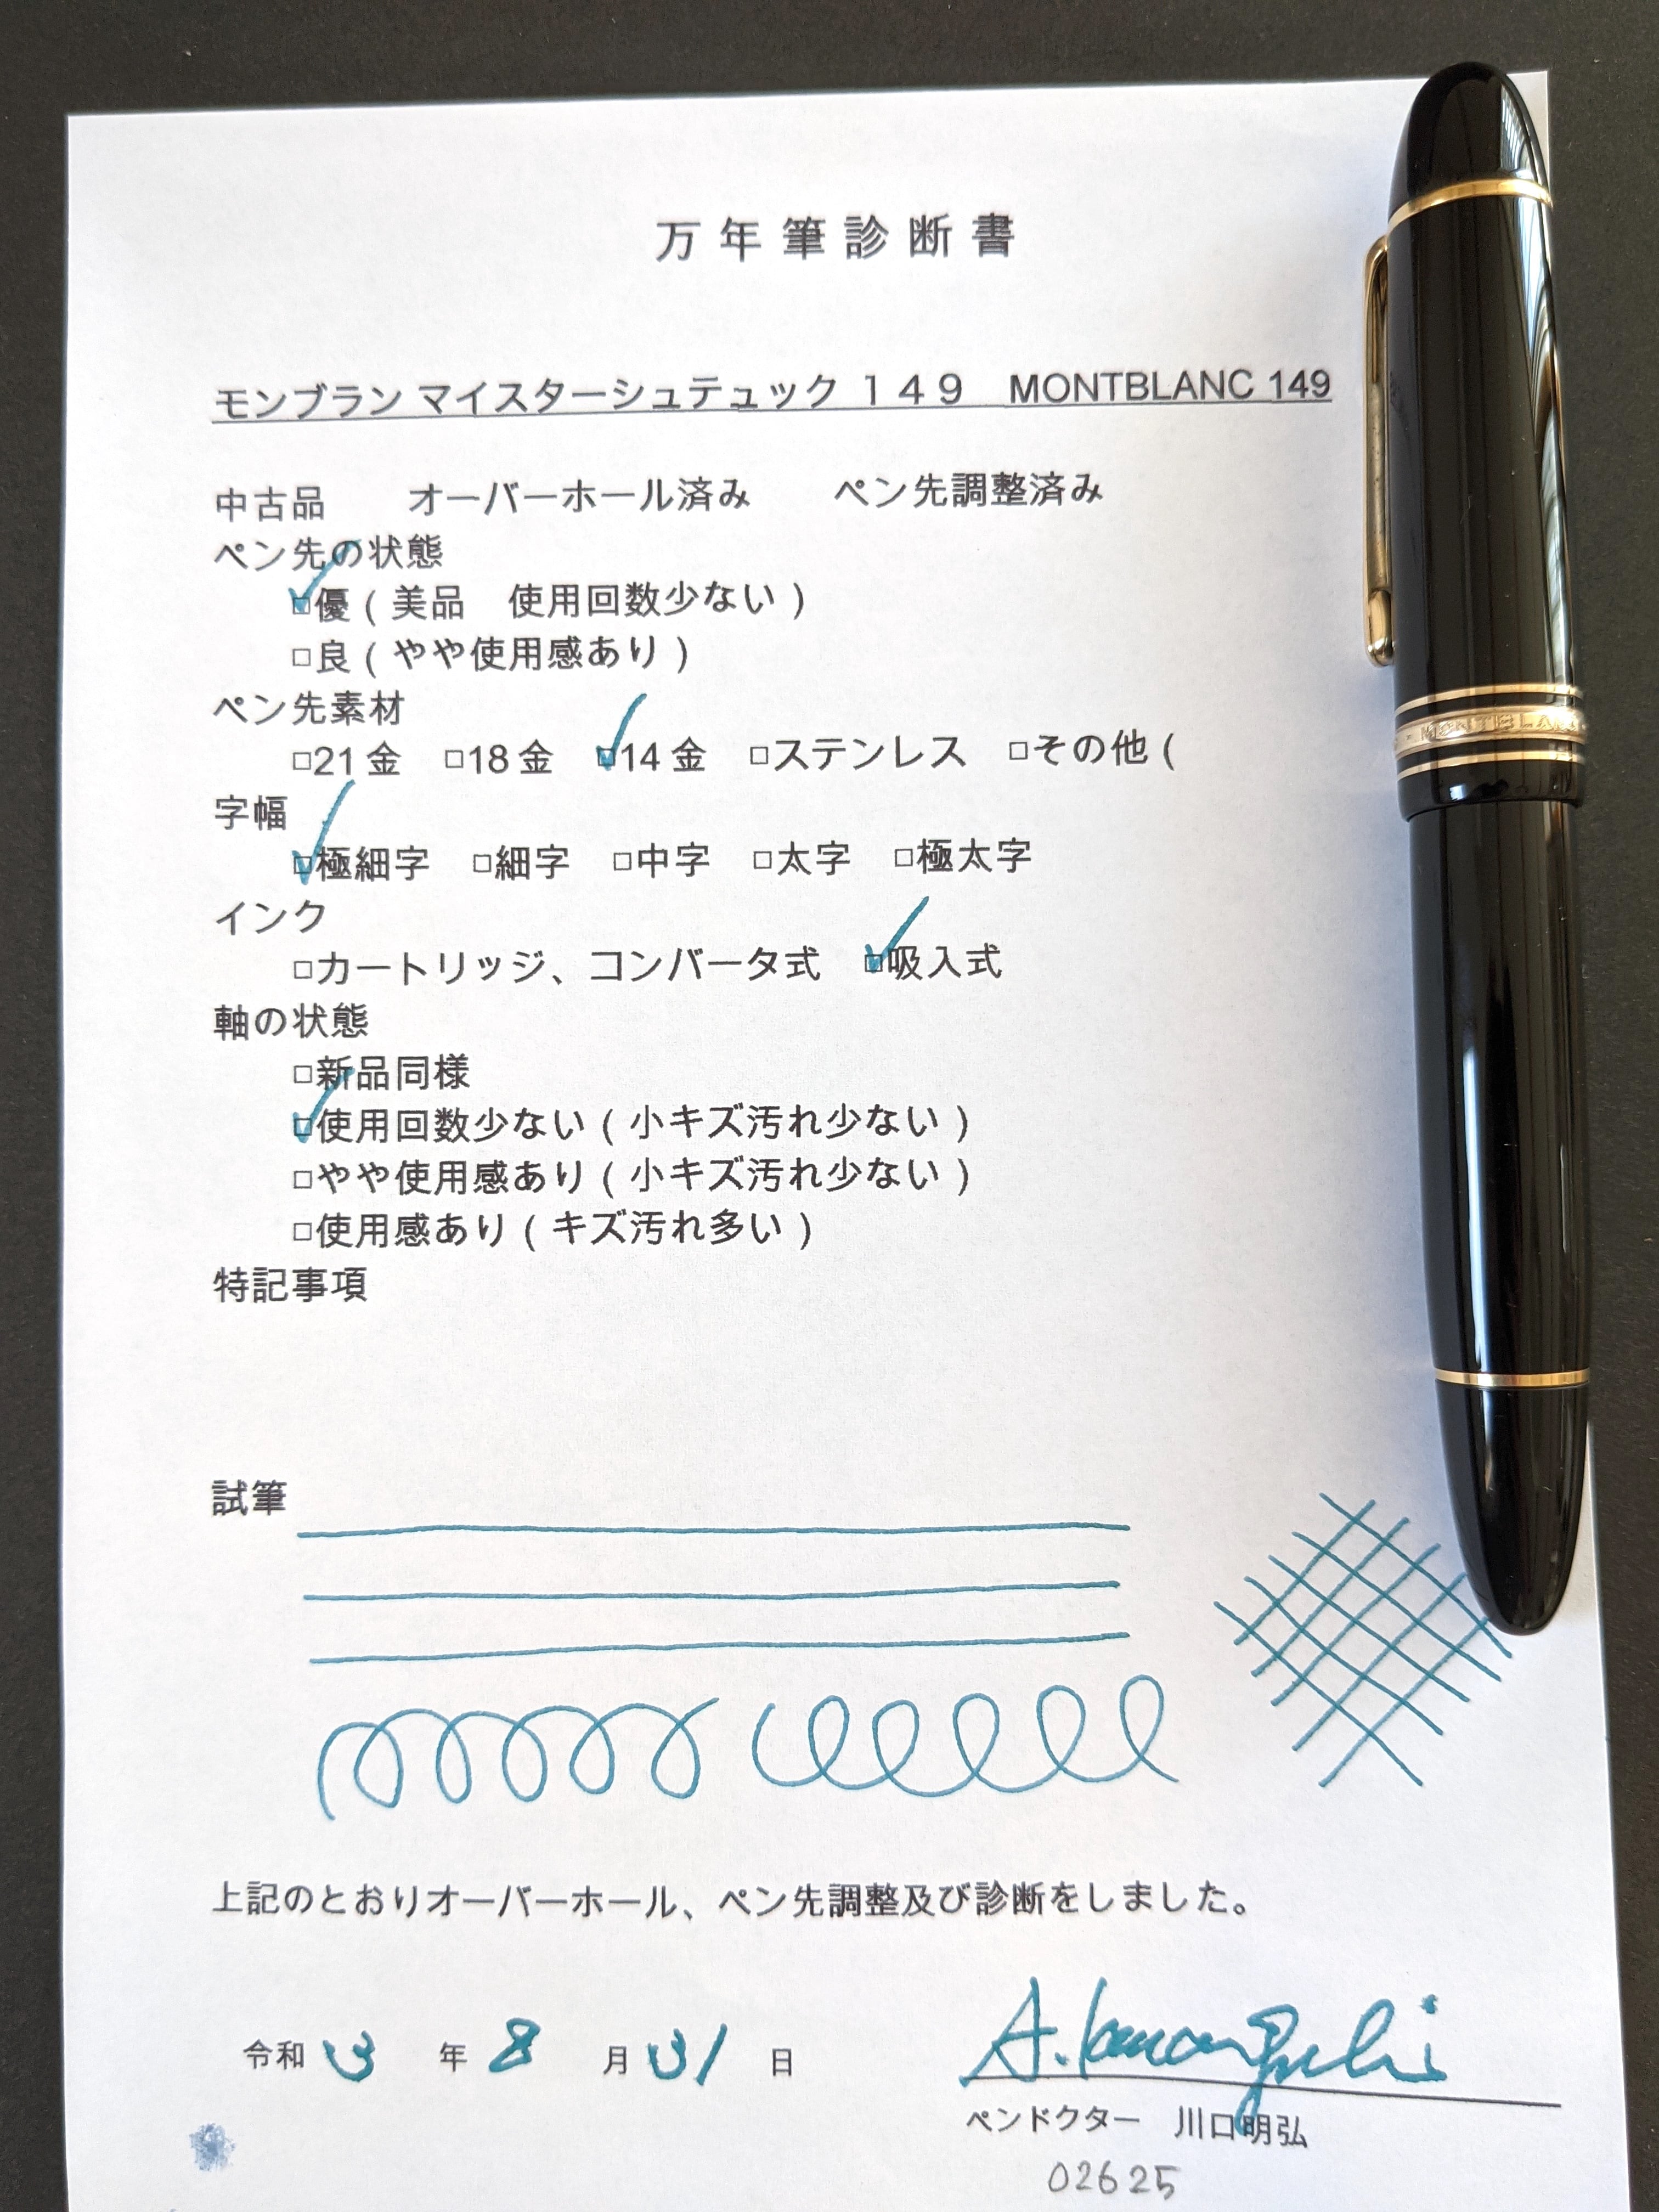 万年筆診断書
モンブラン マイスターシュテュック １４９　MONTBLANC 149
中古品　　オーバーホール済み　　ペン先調整済み
ペン先の状態
☑優（美品　使用回数少ない）
□良（やや使用感あり）
ペン先素材
□21金　□18金　☑14金　□ステンレス　□その他（
字幅
☑極細字　□細字　□中字　□太字　□極太字
インク
□カートリッジ、コンバータ式　☑吸入式
軸の状態
□新品同様
☑使用回数少ない（小キズ汚れ少ない）
□やや使用感あり（小キズ汚れ少ない）
□使用感あり（キズ汚れ多い）
特記事項
試筆
上記のとおりオーバーホール、ペン先調整及び診断をしました。
令和 3 年 8 月 31 日
A. Kawaguchi
ペンドクター　川口明弘
02625
MONTBLANC